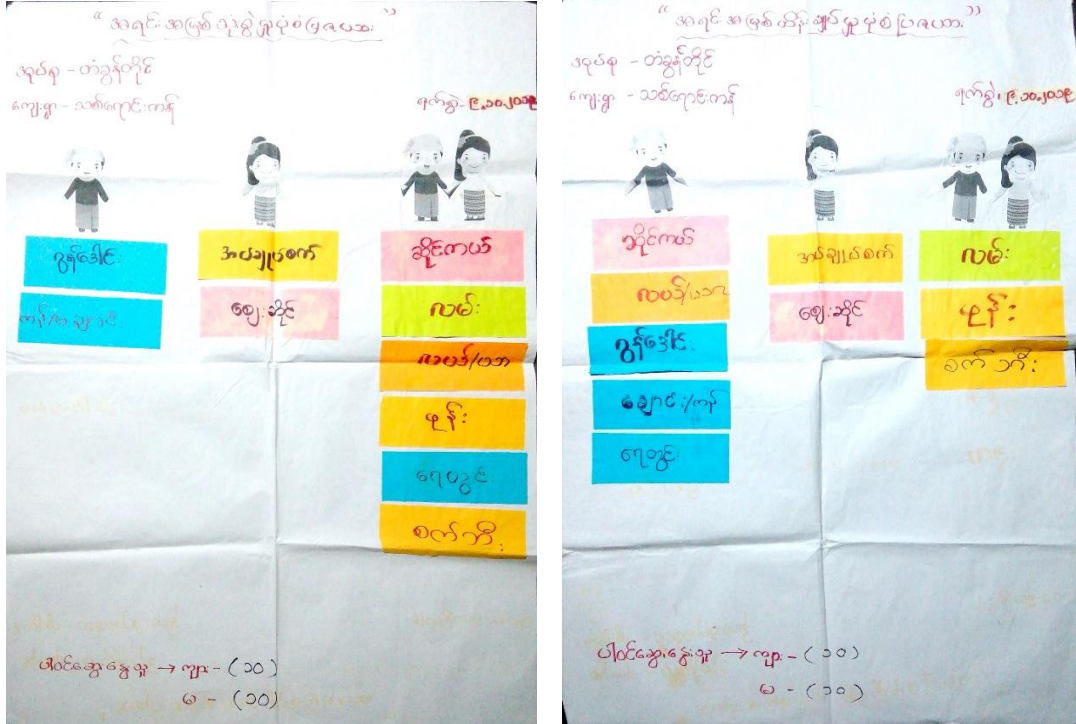 “ အရင်းအမြစ်သုံးစွဲမှုပုံစံပြဇယား ”
အုပ်စု - တံခွန်တိုင်
ကျေးရွာ - သစ်ရောင်းကန်
ရက်စွဲ - ၉.၁၀.၂၀၁၉
ဂွန်ဒေါင်း
အပ်ချုပ်စက်
ဈေးဆိုင်
ဆိုင်ကယ်
လမ်း
လယ်/ယာ
ဖုန်း
ရေတွင်း
စက်ဘီး
ပါဝင်ဆွေးနွေးသူ → ကျား - (၁၀)
မ - (၁၀)
“ အရင်းအမြစ်ထိန်းချုပ်မှုပုံစံပြဇယား ”
အုပ်စု - တံခွန်တိုင်
ကျေးရွာ - သစ်ရောင်းကန်
ရက်စွဲ - ၉.၁၀.၂၀၁၉
ဆိုင်ကယ်
လယ်/ယာ
ဂွန်ဒေါင်း
ချောင်း/ကန်
ရေတွင်း
အပ်ချုပ်စက်
ဈေးဆိုင်
လမ်း
ဖုန်း
စက်ဘီး
ပါဝင်ဆွေးနွေးသူ → ကျား - (၁၀)
မ - (၁၀)